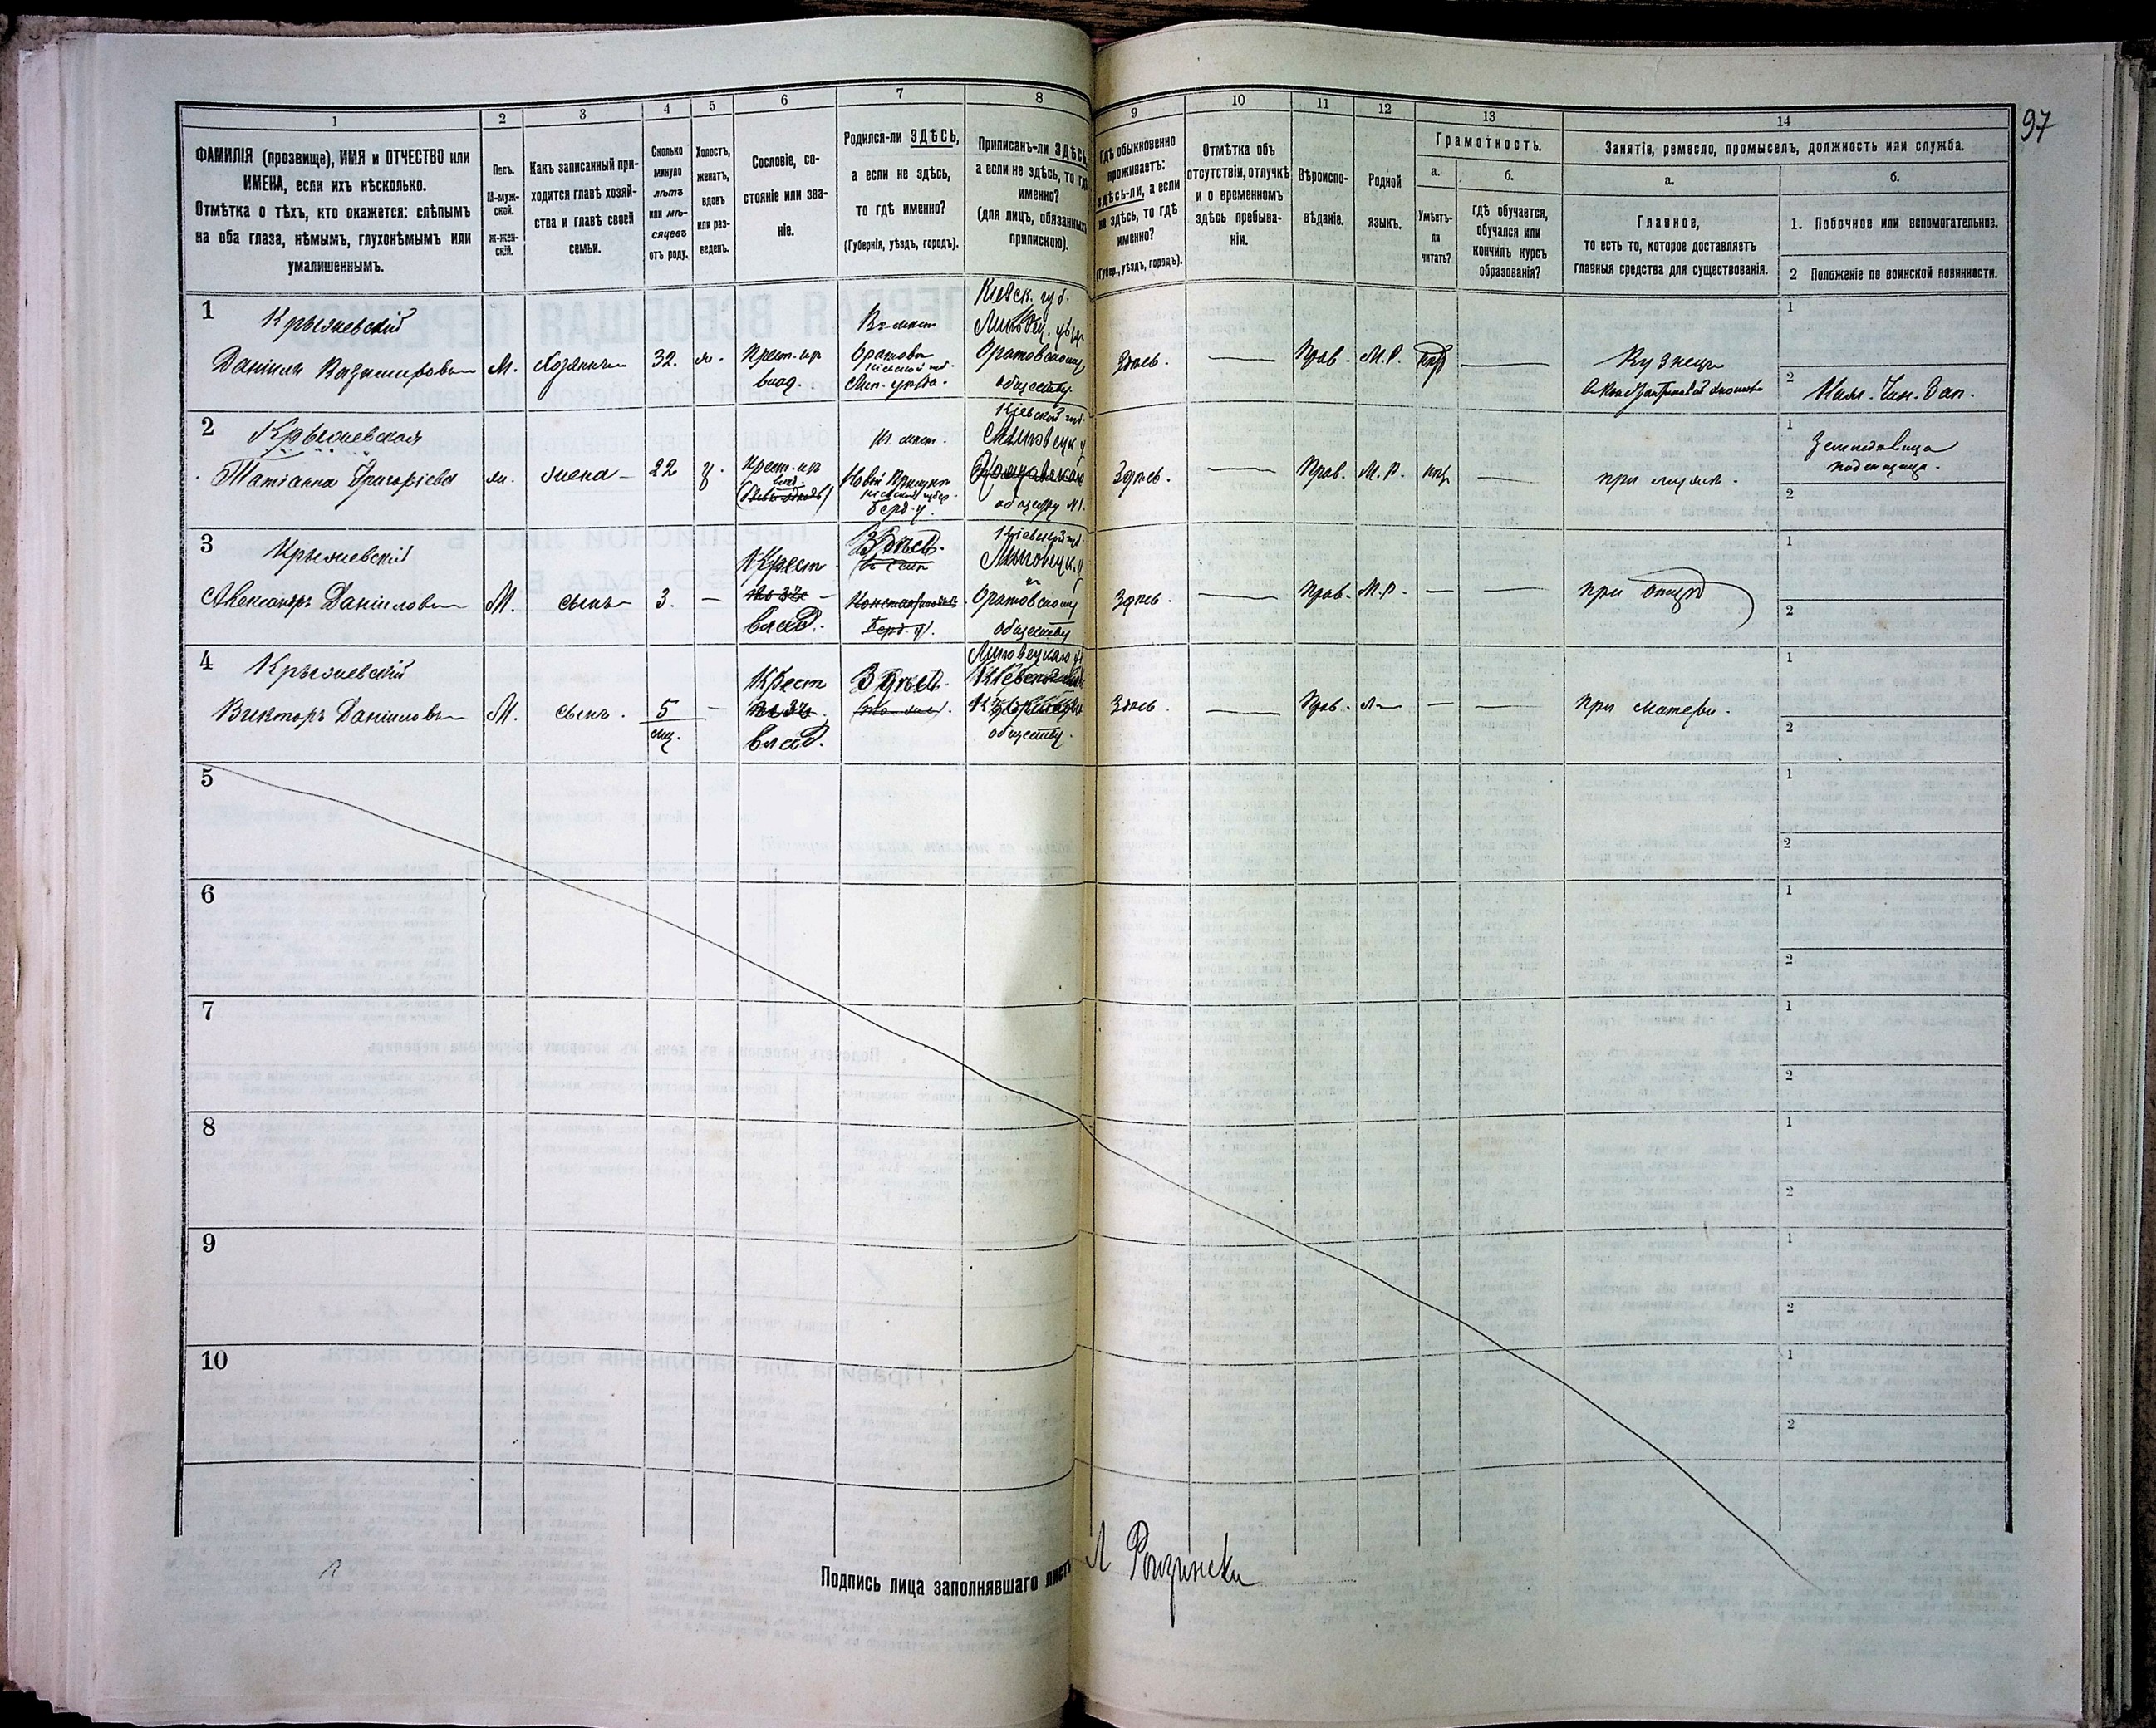 97
1
2
3
4
5
6
7
8
9
10
11
12
13
14
ФАМИЛІЯ (прозвище), ИМЯ и ОТЧЕСТВО или
ИМЕНА, если ихъ нѣсколько.
Отмѣтка о тѣхъ, кто окажется: слѣпымъ
на оба глаза, нѣмымъ, глухонѣмымъ или
умалишеннымъ.
Полъ.
М-муж-
ской.
Ж-жен-
скій.
Какъ записанный при-
ходится главѣ хозяй-
ства и главѣ своей
семьи.
Сколько
минуло
лѣтъ
или мѣ-
сяцевъ
отъ роду.
Холостъ,
женатъ,
вдовъ
или раз-
веденъ.
Сословіе, со-
стояніе или зва-
ніе.
Родился-ли ЗДѢСЬ,
а если не здѣсь,
то гдѣ именно?
(Губернія, уѣздъ, городъ).
Приписанъ-ли ЗДѢСЬ,
а если не здѣсь, то гдѣ
именно?
(для лицъ, обязанныхъ
припискою).
Гдѣ обыкновенно
проживаетъ:
здѣсь-ли, а если
не здѣсь, то гдѣ
именно?
(Губер., уѣздъ, городъ).
Отмѣтка объ
отсутствіи, отлучкѣ
и о временномъ
здѣсь пребыва-
ніи.
Вѣроиспо-
вѣданіе.
Родной
языкъ.
Грамотность.
а.
Умѣетъ-
ли
читать?
б.
гдѣ обучается,
обучался или
кончилъ курсъ
образованія?
Занятіе, ремесло, промыселъ, должность или служба.
а.
Главное,
то есть то, которое доставляетъ
главныя средства для существованія.
б.
1. Побочное или вспомогательное.
2 Положеніе по воинской повинности.
1
Крыжевскій
Даніилъ Казимировъ
М.
Хозяинъ
32.
Крест. из
влад.
Оратовъ
Кіевск. губ.
Липовец. у.
Оратовскому
обществу
Здѣсь.
Прав.
М.Р.
Кузнецъ
1
2
2
Крыжевская
Татіанна Григоріева
жена
22
Крест. из
Берд. у.
обществу №1.
Здѣсь.
Прав.
М.Р.
при мужѣ.
1
подёнщица.
2
3
Крыжевскій
Александръ Даніиловъ
М.
сынъ
3.
Крест
влад.
Здѣсь.
Берд. у.
Оратовскому
обществу
Здѣсь.
Прав.
М.Р.
при отцѣ
1
2
4
Крыжевскій
Викторъ Даніиловъ
М.
сынъ.
5
мц.
Крест
влад.
Здѣсь.
Липовецкаго у.
обществу.
Здѣсь.
Прав.
при матери.
1
2
5
1
2
6
1
2
7
1
2
8
1
2
9
1
2
10
1
2
Подпись лица заполнявшаго листъ